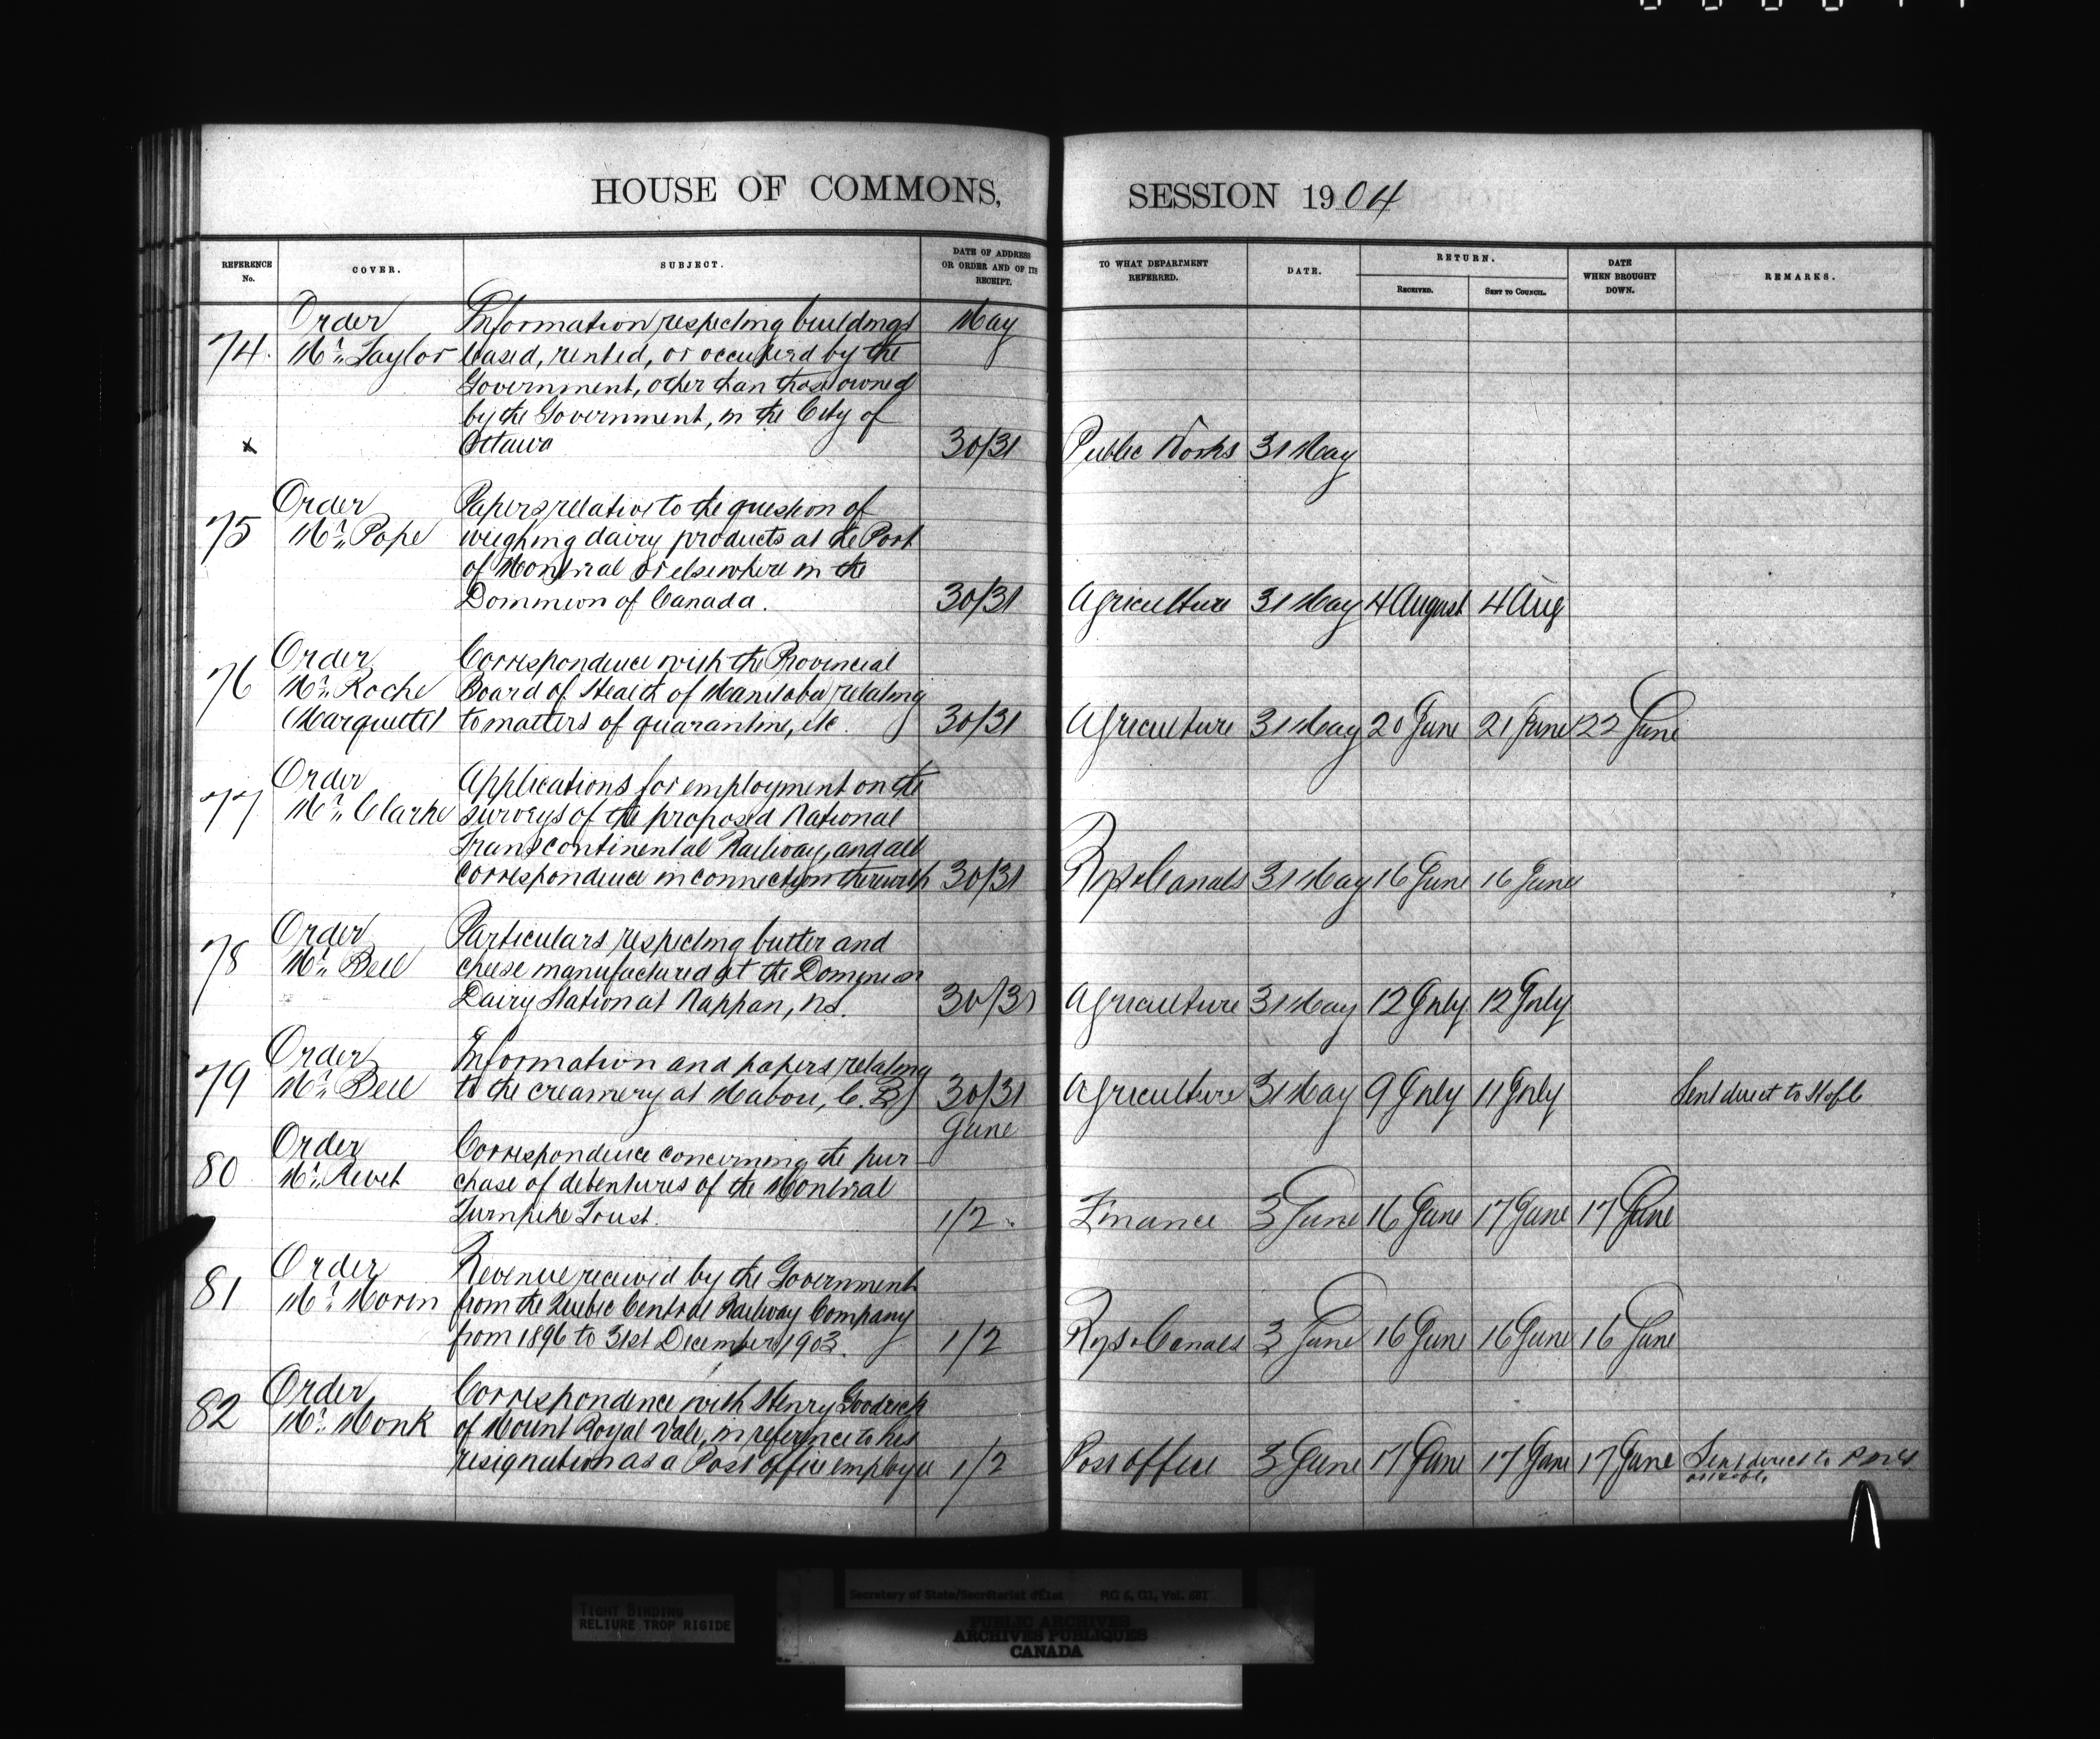 HOUSE OF COMMONS, SESSION 1904
REFERENCE No. COVER. SUBJECT. DATE OF ADDRESS OR ORDER AND OF ITS RECEIPT. TO WHAT DEPARTMENT REFERRED. DATE. RETURN. RECEIVED. SENT TO COUNCIL. DATE WHEN BROUGHT DOWN. REMARKS.
Order Information respecting buildings May
74. Mr. Taylor leased, rented, or occupied by the
Government, other than those owned
by the Government, in the City of
x Ottawa 30/31 Public Works 31 May
Order Papers relative to the question of
75 Mr. Pope weighing dairy products at the Port
of Montreal or elsewhere in the
Dominion of Canada. 30/31 Agriculture 31 May 4 August 4 Aug
Order Correspondence with the Provincial
76 Mr. Roche Board of Health of Manitoba relating
(Marquette) to matters of quarantine, etc. 30/31 Agriculture 31 May 20 June 21 June 22 June
Order Applications for employment on the
77 Mr. Clarke surveys of the proposed National
Transcontinental Railway, and all
correspondence in connection therewith 30/31 Rys & Canals 31 May 16 June 16 June
Order Particulars respecting butter and
78 Mr. Bell cheese manufactured at the Dominion
Dairy Station at Nappan, N.S. 30/31 Agriculture 31 May 12 July 12 July
Order Information and papers relating
79 Mr. Bell to the creamery at Mabou, C.B. 30/31 Agriculture 31 May 9 July 11 July Sent direct to H of C
June
Order Correspondence concerning the pur-
80 Mr. Rivet chase of debentures of the Montreal
Turnpike Trust. 1/2 Finance 3 June 16 June 17 June 17 June
Order Revenue received by the Government
81 Mr. Morin from the Quebec Central Railway Company
from 1896 to 31st December 1903. 1/2 Rys & Canals 3 June 16 June 16 June 16 June
Order Correspondence with Henry Goodrich
82 Mr. Monk of Mount Royal Vale, in reference to his
resignation as a Post office employee 1/2 Post office 3 June 17 June 17 June 17 June Sent direct to
TIGHT BINDING
RELIURE TROP RIGIDE
Secretary of State/Secrétariat d'État RG 6, G1, Vol. 681
PUBLIC ARCHIVES
ARCHIVES PUBLIQUES
CANADA